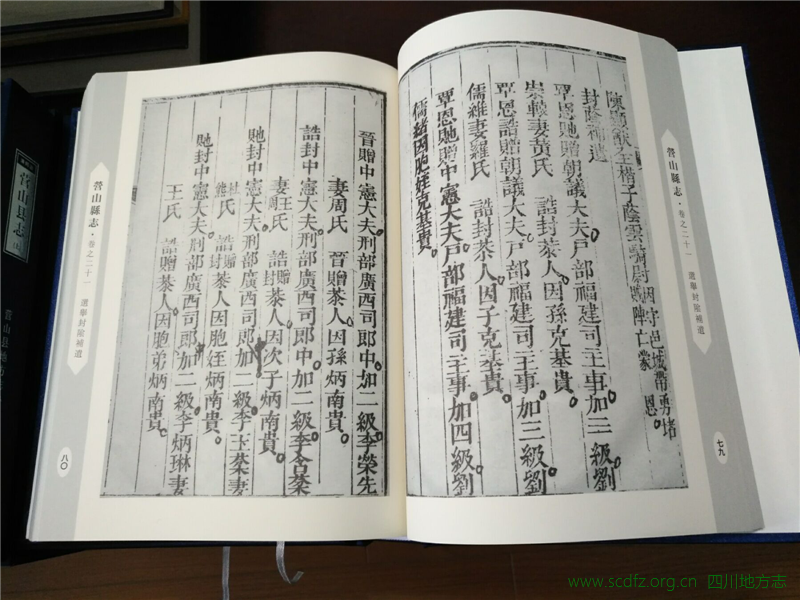 陳
子廕雲騎尉
因守邑城帶勇堵
陣亡蒙
恩
封廕補遺
覃恩馳贈朝議大夫戶部福建司主事加三級劉
崇轅妻黃氏 誥封恭人因孫克基貴
覃恩誥贈朝議大夫戶部福建司主事加三級劉
儒維妻羅氏 誥封恭人因子克基貴
覃恩馳贈中憲大夫戶部福建司主事加四級劉
儒緒因胞姪克基貴
營山縣志·卷之二十一 選舉封廕補遺
七九
晉贈中憲大夫刑部廣西司郎中加二級李榮先
妻周氏 晉贈恭人因孫炳南貴
誥封中憲大夫刑部廣西司郎中加二級李含棻
妻王周氏 誥贈封恭人因次子炳南貴
馳封中憲大夫刑部廣西司郎加二級李玉棻妻
杜熊氏 誥贈封恭人因胞姪炳南貴
馳封中憲大夫刑部廣西司郎中加二級李炳琳妻
王氏 誥贈恭人因胞弟炳南貴
營山縣志·卷之二十一 選舉封廕補遺
八〇
营山县志
营山县地方志
www.scdfz.org.cn 四川地方志